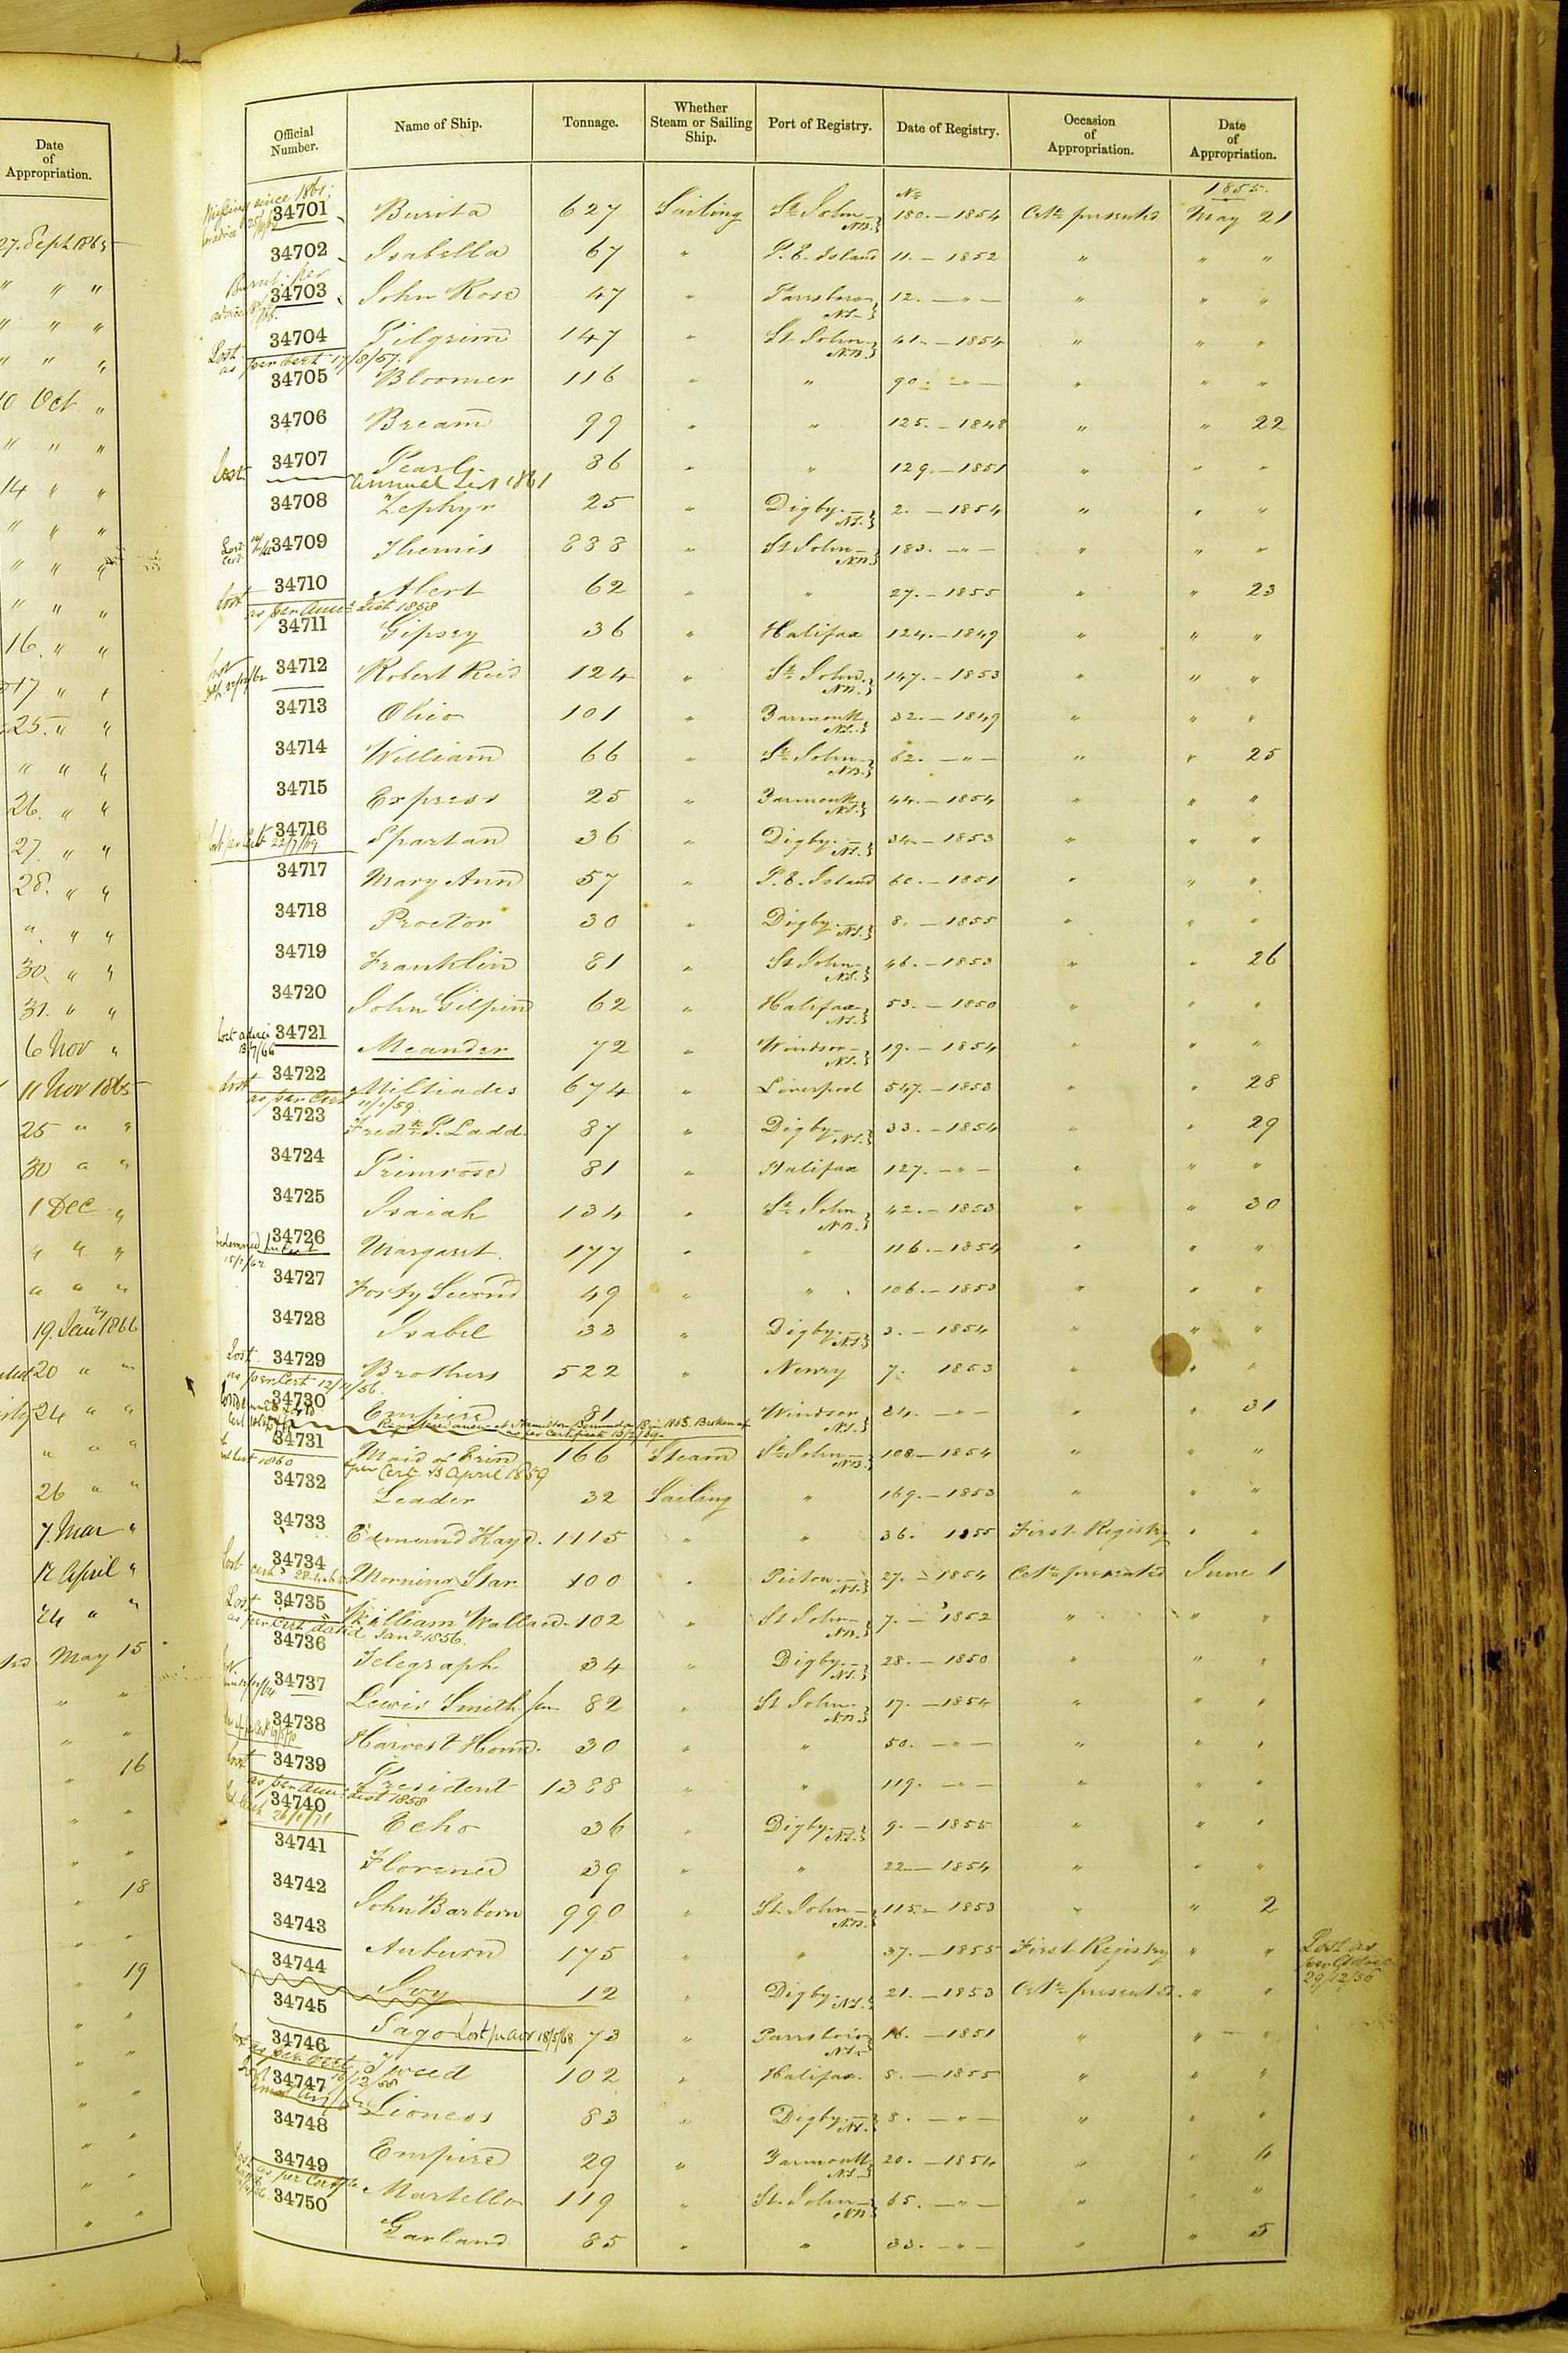 Date
of
Appropriation.
27. Sept 1865
" " "
" " "
" " "
10 Oct "
" " "
14 " "
" " "
" " "
" " "
16. " "
17 " "
25. " "
" " "
26. " "
27. " "
28. " "
" " "
30. " "
31. " "
6 Nov "
11 Nov 1865
25 " "
30 " "
1 Dec "
" " "
" " "
19. Jany 1866
20 " "
24 " "
" " "
26 " "
7. Mar "
12 April "
24 " "
May 15
" "
" "
16
" "
" "
18
" "
19
" "
" "
" "
" "
" "
" "
Official Number. Name of Ship. Tonnage. Whether Steam or Sailing Ship. Port of Registry. Date of Registry. Occasion of Appropriation. Date of Appropriation.
No 1855.
Missing since 1861
34701 Burita 627 Sailing St John N.B. 180. - 1854 Certe presented May 21
34702 Isabella 67 " P. E. Island 11. - 1852 " " "
Burnt per advice
34703 John Rose 47 " Parrsboro N.S. 12. - " - " " "
34704 Pilgrim 147 " St John N.B. 41. - 1854 " " "
Lost as per Cert 17/8/57.
34705 Bloomer 116 " " 90. - " - " " "
34706 Bream 99 " " 125. - 1848 " " 22
34707 Pearl 86 " " 129. - 1851 " " "
Lost Annual List 1861
34708 Zephyr 25 " Digby N.S. 2. - 1854 " " "
Lost Cert
34709 Themis 888 " St John N.B. 183. - " - " " "
34710 Alert 62 " " 27. - 1855 " " 23
Lost as per Annl List 1858
34711 Gipsey 36 " Halifax 124. - 1849 " " "
34712 Robert Reid 124 " St John N.B. 147. - 1853 " " "
34713 Ohio 101 " Yarmouth N.S. 32. - 1849 " " "
34714 William 66 " St John N.B. 62. - " - " " 25
34715 Express 25 " Yarmouth N.S. 44. - 1854 " " "
34716 Spartan 36 " Digby N.S. 34. - 1853 " " "
Lost per Cert 22/7/69
34717 Mary Ann 57 " P. E. Island 60. - 1851 " " "
34718 Proctor 30 " Digby N.S. 8. - 1855 " " "
34719 Franklin 81 " St John N.B. 46. - 1853 " " 26
34720 John Gilpin 62 " Halifax N.S. 53. - 1850 " " "
Lost advice 13/7/66
34721 Meander 72 " Windsor N.S. 19. - 1854 " " "
34722 Miltiades 674 " Liverpool 547. - 1853 " " 28
Lost as per Cert 11/1/59
34723 Fredk P. Ladd 87 " Digby N.S. 33. - 1854 " " 29
34724 Primrose 81 " Halifax 127. - " - " " "
34725 Isaiah 134 " St John N.B. 42. - 1853 " " 30
34726 Margaret 177 " " 116. - 1854 " " "
Condemned per Cert
34727 Forty Second 49 " " 106. - 1853 " " "
34728 Isabel 33 " Digby N.S. 3. - 1854 " " "
34729 Brothers 522 " Newry 7. 1853 " " "
Lost as per Cert 12/11/56.
34730 Empire 81 " Windsor N.S. 24. - " - " " 31
Registered anew at Hamilton Bermuda 1863. Broken up as per Certificate
34731 Maid of Erin 166 Steam St John N.B. 108 - 1854 " " "
per Cert 13 April 1859
34732 Leader 32 Sailing " 169. - 1853 " " "
34733 Edmund Kaye. 1115 " " 36. 1855 First Registry " "
34734 Morning Star 100 " Pictou N.S. 27. - 1854 Certe presented June 1
Lost
34735 William Wallace. 102 " St John N.B. 7. - 1852 " " "
Lost as per Cert dated Jany 1856.
34736 Telegraph 34 " Digby N.S. 28. - 1850 " " "
34737 Lewis Smith Jun 82 " St John N.B. 17. - 1854 " " "
34738 Harvest Home. 30 " " 50. - " - " " "
34739 President 1388 " " 119. - " - " " "
Lost as per Annl List 1858
34740 Echo 36 " Digby N.S. 9. - 1855 " " "
34741 Florence 39 " " 22 - 1854 " " "
34742 John Barbour 990 " St John N.B. 115 - 1853 " " 2
34743 Auburn 175 " " 37. - 1855 First Registry " "
Lost as per Advice 29/12/56
34744 Ivy 12 " Digby N.S. 21. - 1853 Certe presented " "
34745 Sago 73 " Parrsboro N.S. 16. - 1851 " " "
Lost pr Advr 18/5/68
34746 Tweed 102 " Halifax. 5. - 1855 " " "
Lost as per Cert 16/12/58
34747 Lioness 83 " Digby N.S. 8. - " - " " "
34748 Empire 29 " Yarmouth N.S. 20. - 1854 " " 4
34749 Martello 119 " St. John N.B. 65. - " - " " "
Lost as per Cert
34750 Garland 85 " " 33. - " - " " 5